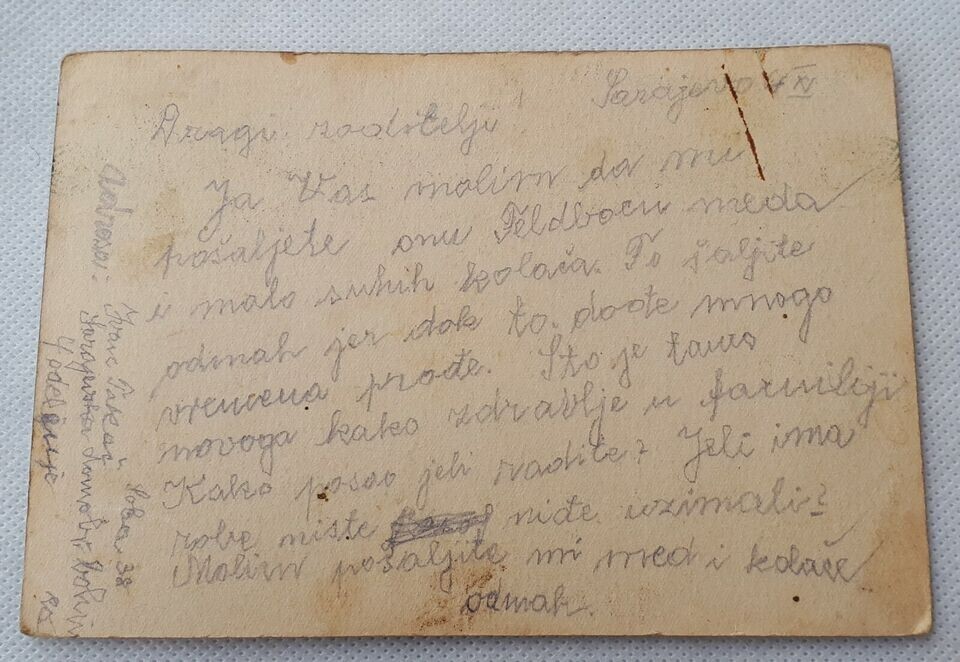 Sarajevo 4 XI
Dragi roditelji
Ja Vas molim da mu
pošaljete onu Feldbocu meda
i malo suhih kolača. To šaljite
odmah jer dok to dođe mnogo
vremena prođe. Što je tamo
novoga kako zdravlje u familiji
Kako posao jeli radite? Jeli ima
robe niste niđe uzimali?
Molim pošaljite mi med i kolače
odmah.
Adresa: Ivan soba 38
Sarajevska